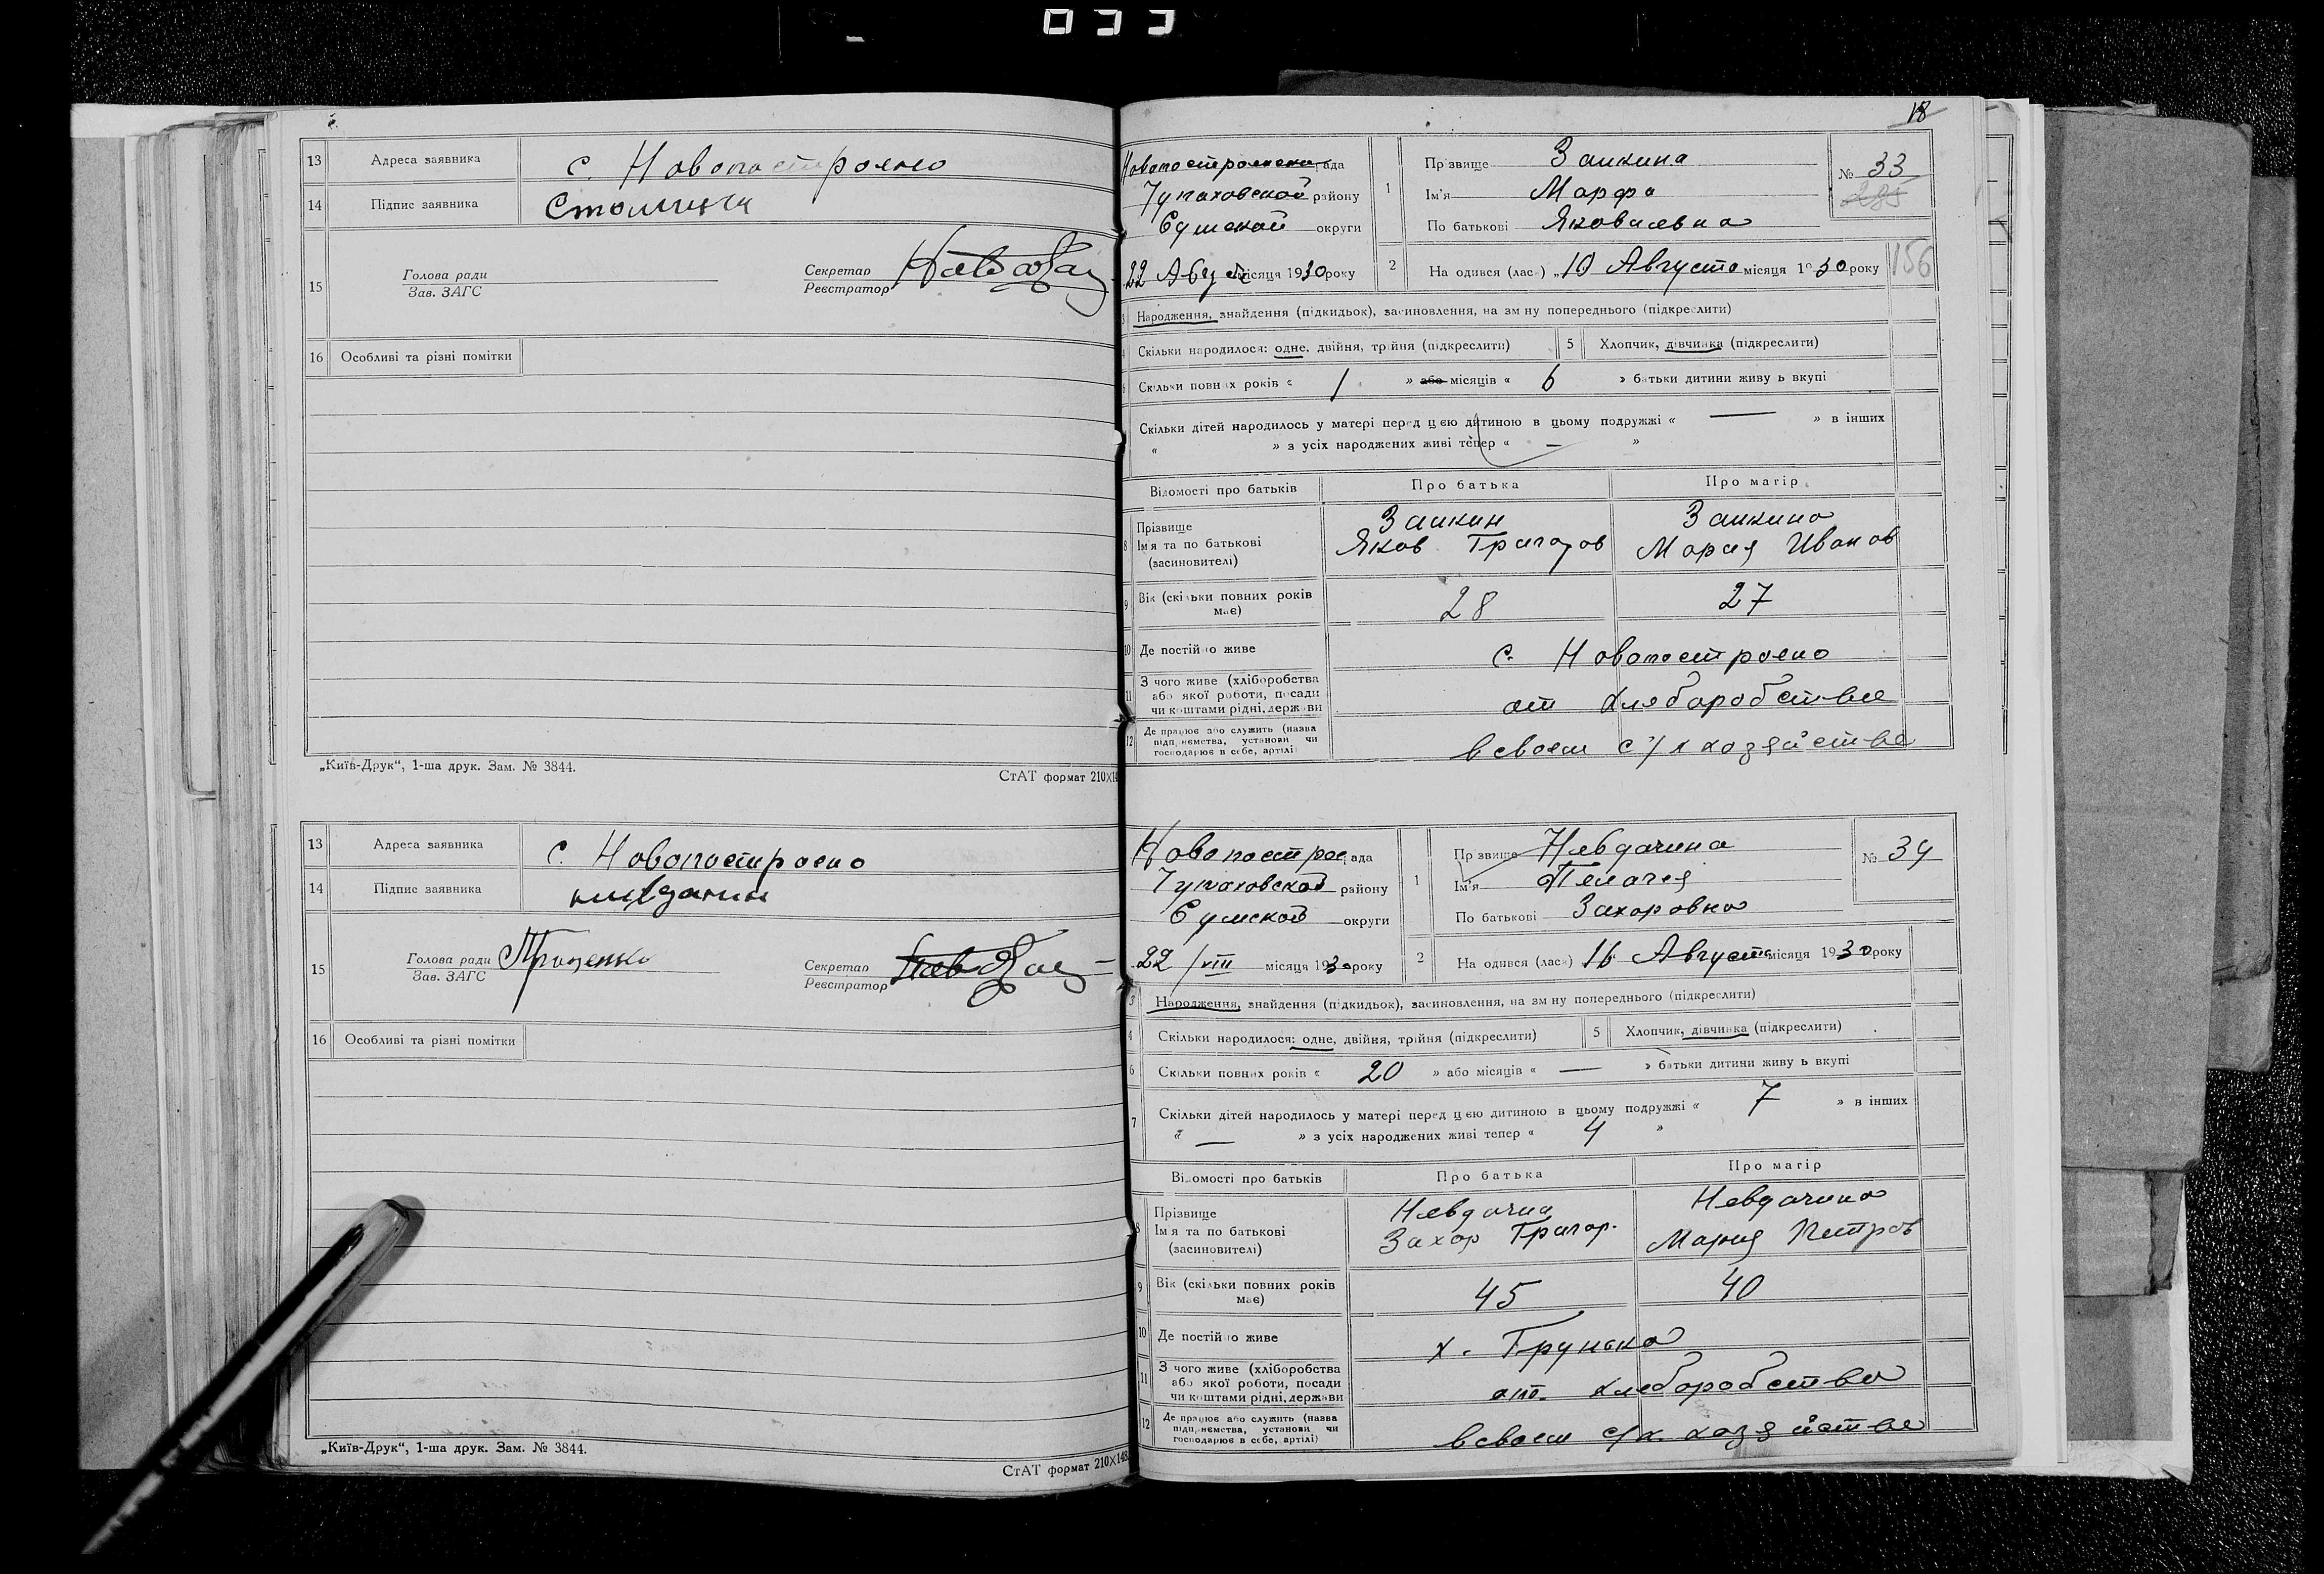 033
13 Адреса заявника с. Новопостроено
14 Підпис заявника
15 Голова ради Секретар
Зав. ЗАГС Реєстратор
16 Особливі та різні помітки
„Київ-Друк“, 1-ша друк. Зам. № 3844.
СтАТ формат 210×14
13 Адреса заявника с. Новопостроено
14 Підпис заявника
15 Голова ради Проценко Секретар
Зав. ЗАГС Реєстратор
16 Особливі та різні помітки
„Київ-Друк“, 1-ша друк. Зам. № 3844.
СтАТ формат 210×148
18
рада
району
Сумской округи
22 Август місяця 1930 року
1 Прізвище Заикина
Ім'я Марфа
По батькові Яковлевна
№ 33
2 На одився (лась) „10 Августа місяця 1930 року
156
3 Народження, знайдення (підкидьок), засиновлення, на зм ну попереднього (підкреслити)
4 Скільки народилося: одне, двійня, трійня (підкреслити) 5 Хлопчик, дівчинка (підкреслити)
6 Скільки повних років « 1 » або місяців « 6 » батьки дитини живу ь вкупі
Скільки дітей народилось у матері перед цією дитиною в цьому подружжі « — » в інших
« » з усіх народжених живі тепер « — »
Відомості про батьків Про батька Про матір
8 Прізвище Заикин Заикина
Ім'я та по батькові Яков Григоров Мария Иванов
(засиновителі)
9 Вік (скільки повних років має) 28 27
10 Де постійно живе с. Новопостроено
11 З чого живе (хліборобства
або якої роботи, посади
чи коштами рідні, держави от хлеборобства
12 Де працює або служить (назва
підприємства, установи чи
господарює в себе, артілі) в своем с/х хозяйстве
Новопострое рада
району
Сумской округи
22/VIII місяця 1930 року
1 Прізвище Невдачина
Ім'я Пелагея
По батькові Захаровна
№ 34
2 На одився (лась) 16 Августа місяця 1930 року
3 Народження, знайдення (підкидьок), засиновлення, на зм ну попереднього (підкреслити)
4 Скільки народилося: одне, двійня, трійня (підкреслити) 5 Хлопчик, дівчинка (підкреслити)
6 Скільки повних років « 20 » або місяців « — » батьки дитини живу ь вкупі
7 Скільки дітей народилось у матері перед цією дитиною в цьому подружжі « 7 » в інших
« — » з усіх народжених живі тепер « 4 »
Відомості про батьків Про батька Про матір
8 Прізвище Невдачин Невдачина
Ім'я та по батькові Захар Григор. Мария Петров
(засиновителі)
9 Вік (скільки повних років має) 45 40
10 Де постійно живе х. Грунька
11 З чого живе (хліборобства
або якої роботи, посади
чи коштами рідні, держави от хлеборобства
12 Де працює або служить (назва
підприємства, установи чи
господарює в себе, артілі) в своем с/х. хозяйстве